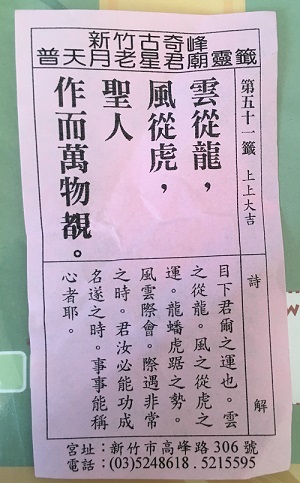 新竹古奇峰
普天月老星君廟靈籤
第五十一籤 上上大吉
雲從龍，
風從虎，
聖人
作而萬物覩。
詩解
目下君爾之運也。雲
之從龍。風之從虎之
運。龍蟠虎踞之勢。
風雲際會。際遇非常
之時。君汝必能功成
名遂之時。事事能稱
心者耶。
宮址：新竹市高峰路306號
電話：(03)5248618．5215595